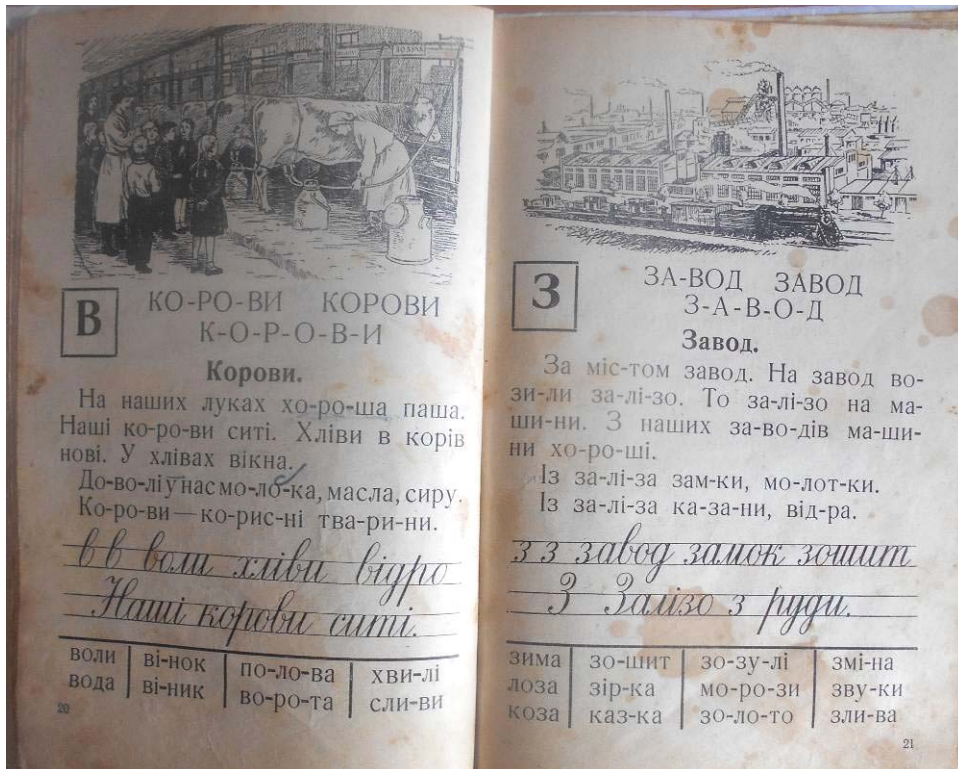 ЗОЗУЛЯ
В
КО-РО-ВИ КОРОВИ
К-О-Р-О-В-И
Корови.
На наших луках хо-ро-ша паша.
Наші ко-ро-ви ситі. Хліви в корів
нові. У хлівах вікна.
До-во-лі у нас мо-ло-ка, масла, сиру.
Ко-ро-ви — ко-рис-ні тва-ри-ни.
в в воли хліви відро
Наші корови ситі.
воли ві-нок по-ло-ва хви-лі
вода ві-ник во-ро-та сли-ви
20
З
ЗА-ВОД ЗАВОД
З-А-В-О-Д
Завод.
За міс-том завод. На завод во-
зи-ли за-лі-зо. То за-лі-зо на ма-
ши-ни. З наших за-во-дів ма-ши-
ни хо-ро-ші.
Із за-лі-за зам-ки, мо-лот-ки.
Із за-лі-за ка-за-ни, від-ра.
з з завод замок зошит
З Залізо з руди.
зима зо-шит зо-зу-лі змі-на
лоза зір-ка мо-ро-зи зву-ки
коза каз-ка зо-ло-то зли-ва
21